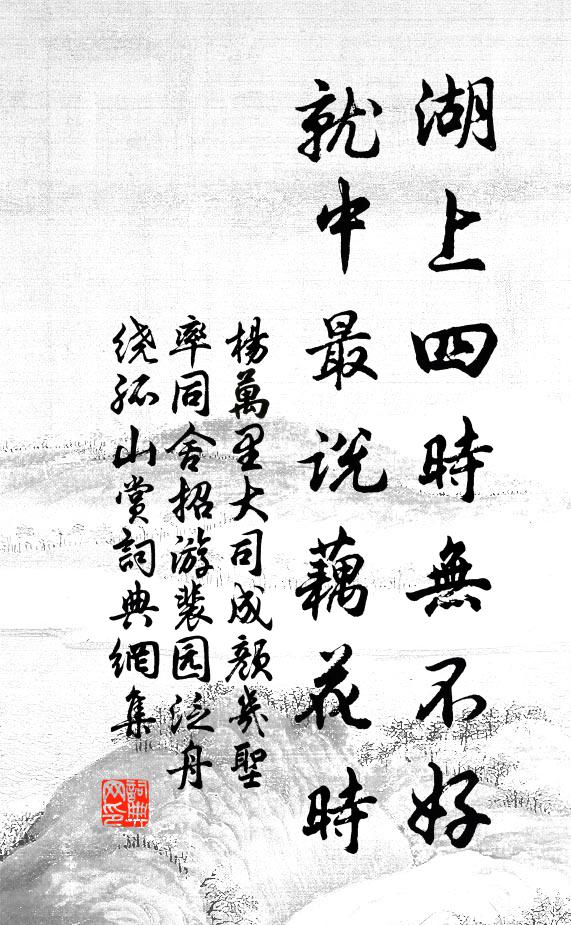 湖上四時無不好
就中最说藕花時
楊萬里大司成颜幾聖
率同舍招游裴园泛舟
绕孤山赏詞典網集
詞典网印